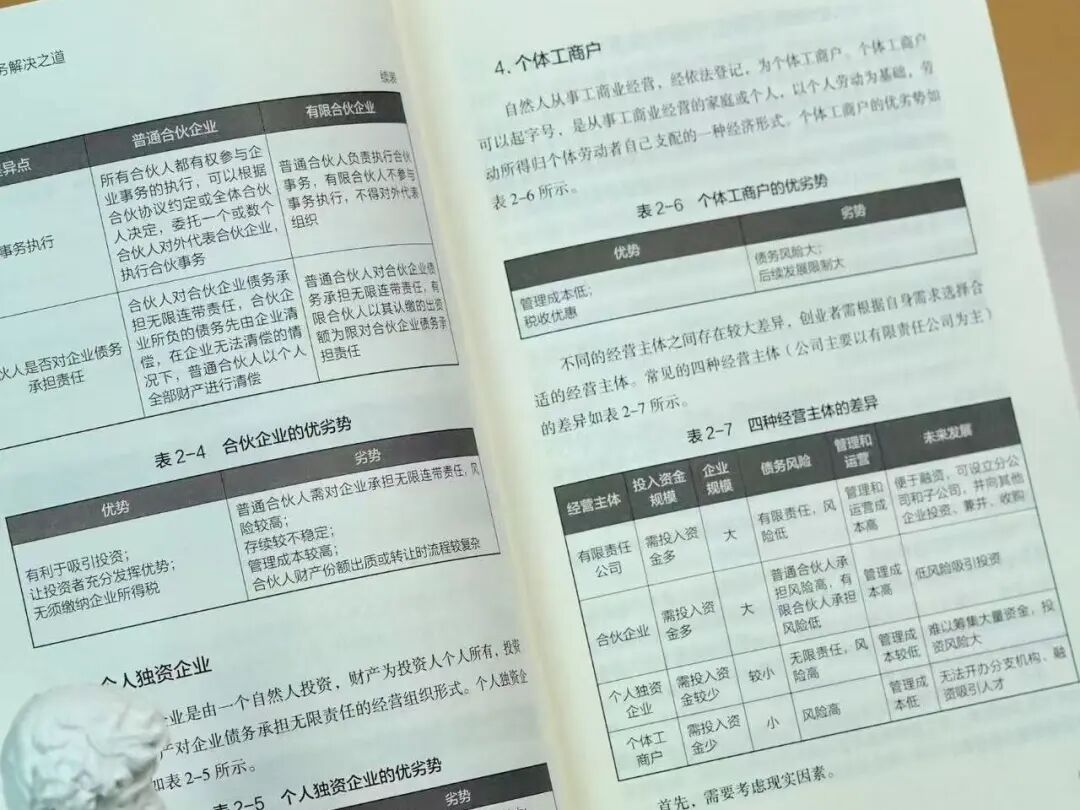 务解决之道
续表
异点
普通合伙企业
有限合伙企业
事务执行
所有合伙人都有权参与企
业事务的执行，可以根据
合伙协议约定或全体合伙
人决定，委托一个或数个
合伙人对外代表合伙企业，
执行合伙事务
普通合伙人负责执行合伙
事务，有限合伙人不参与
事务执行，不得对外代表
组织
伙人是否对企业债务
承担责任
合伙人对合伙企业债务承
担无限连带责任，合伙企
业所负的债务先由企业清
偿，在企业无法清偿的情
况下，普通合伙人以个人
全部财产进行清偿
普通合伙人对合伙企业债
务承担无限连带责任，有
限合伙人以其认缴的出资
额为限对合伙企业债务承
担责任
表 2-4 合伙企业的优劣势
优势
劣势
有利于吸引投资；
让投资者充分发挥优势；
无须缴纳企业所得税
普通合伙人需对企业承担无限连带责任，风
险较高；
存续较不稳定；
管理成本较高；
合伙人财产份额出质或转让时流程较复杂
个人独资企业
业是由一个自然人投资，财产为投资人个人所有，投资
产对企业债务承担无限责任的经营组织形式。个人独资企
如表 2-5 所示。
表 2-5 个人独资企业的优劣势
劣势
4. 个体工商户
自然人从事工商业经营，经依法登记，为个体工商户。个体工商户
可以起字号，是从事工商业经营的家庭或个人，以个人劳动为基础，劳
动所得归个体劳动者自己支配的一种经济形式。个体工商户的优劣势如
表 2-6 所示。
表 2-6 个体工商户的优劣势
优势
劣势
管理成本低；
税收优惠
债务风险大；
后续发展限制大
不同的经营主体之间存在较大差异，创业者需根据自身需求选择合
适的经营主体。常见的四种经营主体（公司主要以有限责任公司为主）
的差异如表 2-7 所示。
表 2-7 四种经营主体的差异
经营主体
投入资金
规模
企业
规模
债务风险
管理和
运营
未来发展
有限责任
公司
需投入资
金多
大
有限责任，风
险低
管理和
运营成
本高
便于融资，可设立分公
司和子公司，并向其他
企业投资、兼并、收购
合伙企业
需投入资
金多
大
普通合伙人承
担风险高，有
限合伙人承担
风险低
管理成
本高
低风险吸引投资
个人独资
企业
需投入资
金较少
较小
无限责任，风
险高
管理成
本较低
难以筹集大量资金，投
资风险大
个体工
商户
需投入资
金少
小
风险高
管理成
本低
无法开办分支机构、融
资吸引人才
首先，需要考虑现实因素。